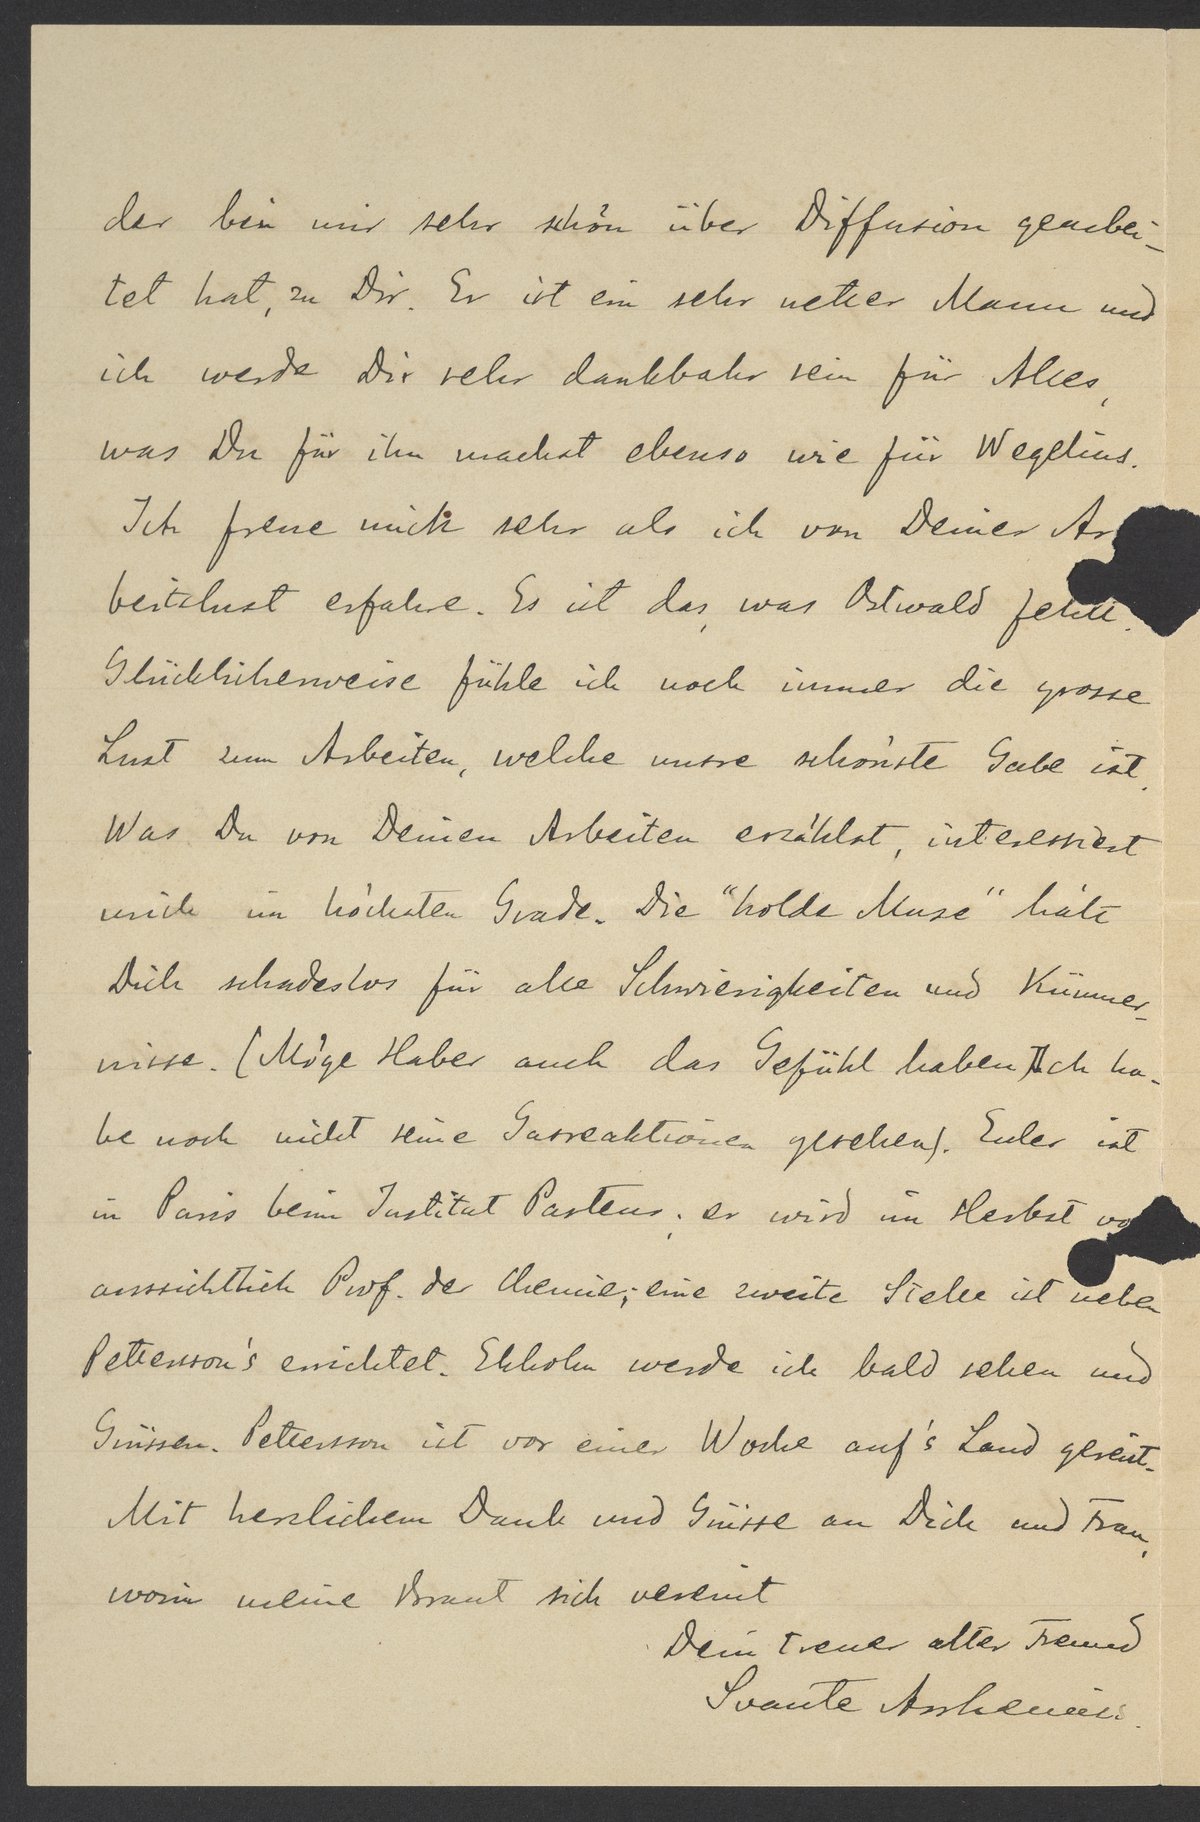 der bei mir sehr schön über Diffusion gearbei-
tet hat, zu Dir. Er ist ein sehr netter Mann und
ich werde Dir sehr dankbahr sein für Alles,
was Du für ihn machst ebenso wie für Wegelius.
Ich freue mich sehr als ich von Deiner Ar
beitslust erfahre. Es ist das, was Ostwald fehlt.
Glücklicherweise fühle ich noch immer die grosse
Lust zum Arbeiten, welche unsre schönste Gabe ist.
Was Du von Deinen Arbeiten erzählst, interessiert
mich im höchsten Grade. Die "holde Muse" hält
Dich schadeslos für alle Schwierigkeiten und Kümmer-
nisse. (Möge Haber auch das Gefühl haben) Ich ha-
be noch nicht seine Gasreaktionen gesehen). Euler ist
in Paris beim Institut Pasteur; er wird im Herbst vo
aussichtlich Prof. der Chemie; eine zweite Stelle ist neben
Pettersson's errichtet. Ekholm werde ich bald sehen und
Grüssen. Pettersson ist vor einer Woche auf's Land gereist.
Mit herzlichem Dank und Grüsse an Dich und Frau,
worin meine Braut sich vereint
Dein treuer alter Freund
Svante Arrhenius.